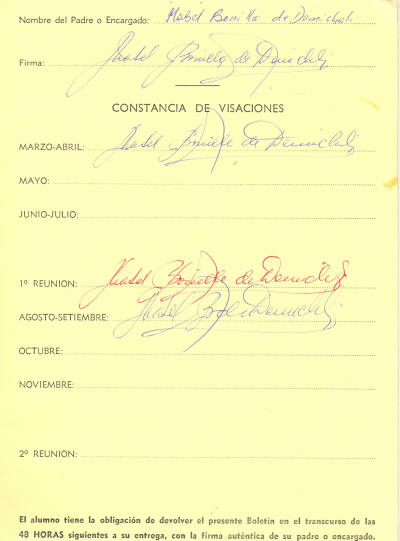 Nombre del Padre o Encargado: Mabel Bonilla de Demicheli
Firma: Mabel Bonilla de Demicheli
CONSTANCIA DE VISACIONES
MARZO-ABRIL: Mabel Bonilla de Demicheli
MAYO:
JUNIO-JULIO:
1ª REUNION: Mabel Bonilla de Demicheli
AGOSTO-SETIEMBRE: Mabel B. de Demicheli
OCTUBRE:
NOVIEMBRE:
2ª REUNION:
El alumno tiene la obligación de devolver el presente Boletín en el transcurso de las
48 HORAS siguientes a su entrega, con la firma auténtica de su padre o encargado.